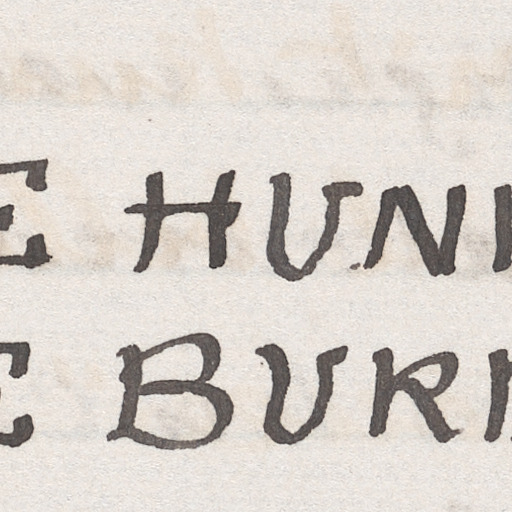 E HUN
E BUR